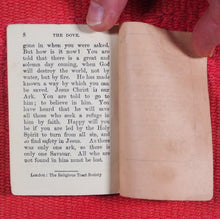 8 THE DOVE.
gone in when you were asked.
But how is it now? You are
told that there is a great and
solemn day coming, when God
will destroy the world, not by
water, but by fire. He has made
known a way by which you can
be saved. Jesus Christ is our
Ark. You are told to go to
him; to believe in him. You
have heard that he will save
all those who seek a refuge in
him by faith. Happy will you
be if you are led by the Holy
Spirit to turn from all sin, and
so find safety in Jesus. As there
was only one Ark, so there is
only one Saviour. All who are
not found in him must be lost.
London: The Religious Tract Society